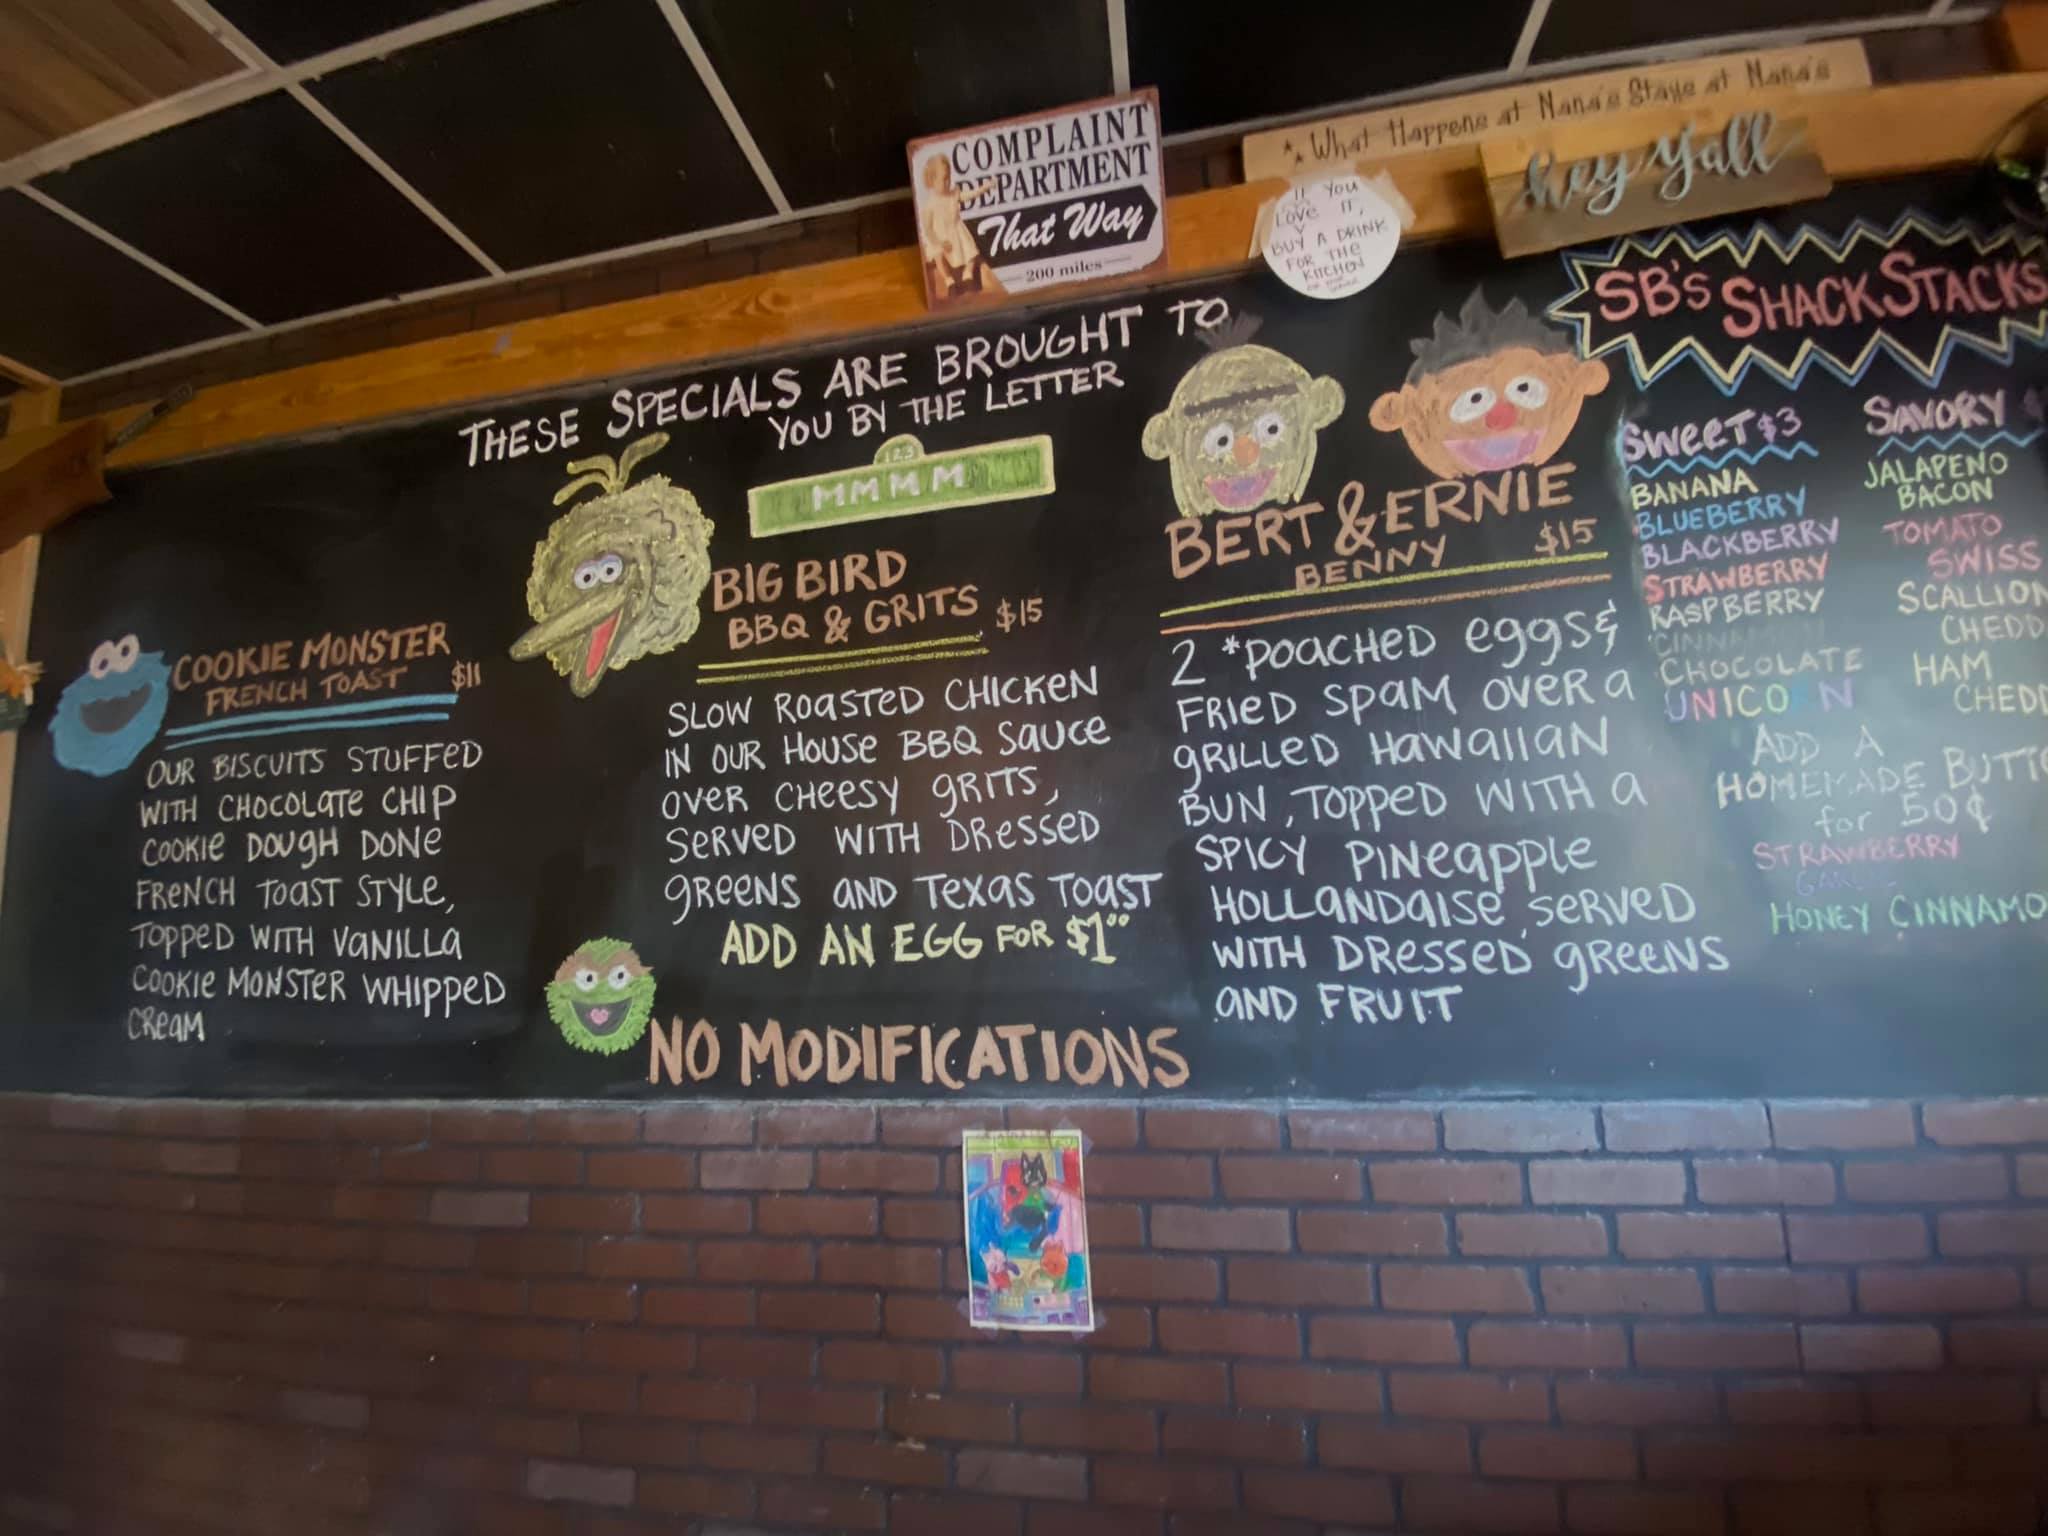 COMPLAINT
DEPARTMENT
That Way
200 miles
What Happens at Nana's Stays at Nana's
hey y'all
If You
Love IT,
BUY A DRINK
FOR THE
KITCHEN
THESE SPECIALS ARE BROUGHT TO
YOU BY THE LETTER
123
MMMM
COOKIE MONSTER
FRENCH TOAST $11
OUR BISCUITS STUFFED
WITH CHOCOLATE CHIP
COOKIE DOUGH DONE
FRENCH TOAST STYLE,
TOPPED WITH VANILLA
COOKIE MONSTER WHIPPED
CREAM
BIG BIRD
BBQ & GRITS $15
SLOW ROASTED CHICKEN
IN OUR HOUSE BBQ SAUCE
OVER CHEESY GRITS,
SERVED WITH DRESSED
GREENS AND TEXAS TOAST
ADD AN EGG FOR $1.00
NO MODIFICATIONS
BERT & ERNIE
BENNY $15
2 *POACHED eggs &
FRIED SPAM OVER A
GRILLED HAWAIIAN
BUN, TOPPED WITH A
SPICY PINEAPPLE
HOLLANDAISE, SERVED
WITH DRESSED GREENS
AND FRUIT
SB'S SHACK STACKS
SWEET $3
BANANA
BLUEBERRY
BLACKBERRY
STRAWBERRY
RASPBERRY
CINNAMON
CHOCOLATE
UNICORN
SAVORY
JALAPENO
BACON
TOMATO
SWISS
SCALLION
CHEDD
HAM
CHEDD
ADD A
HOMEMADE BUTT
for 50¢
STRAWBERRY
GARLIC
HONEY CINNAMO